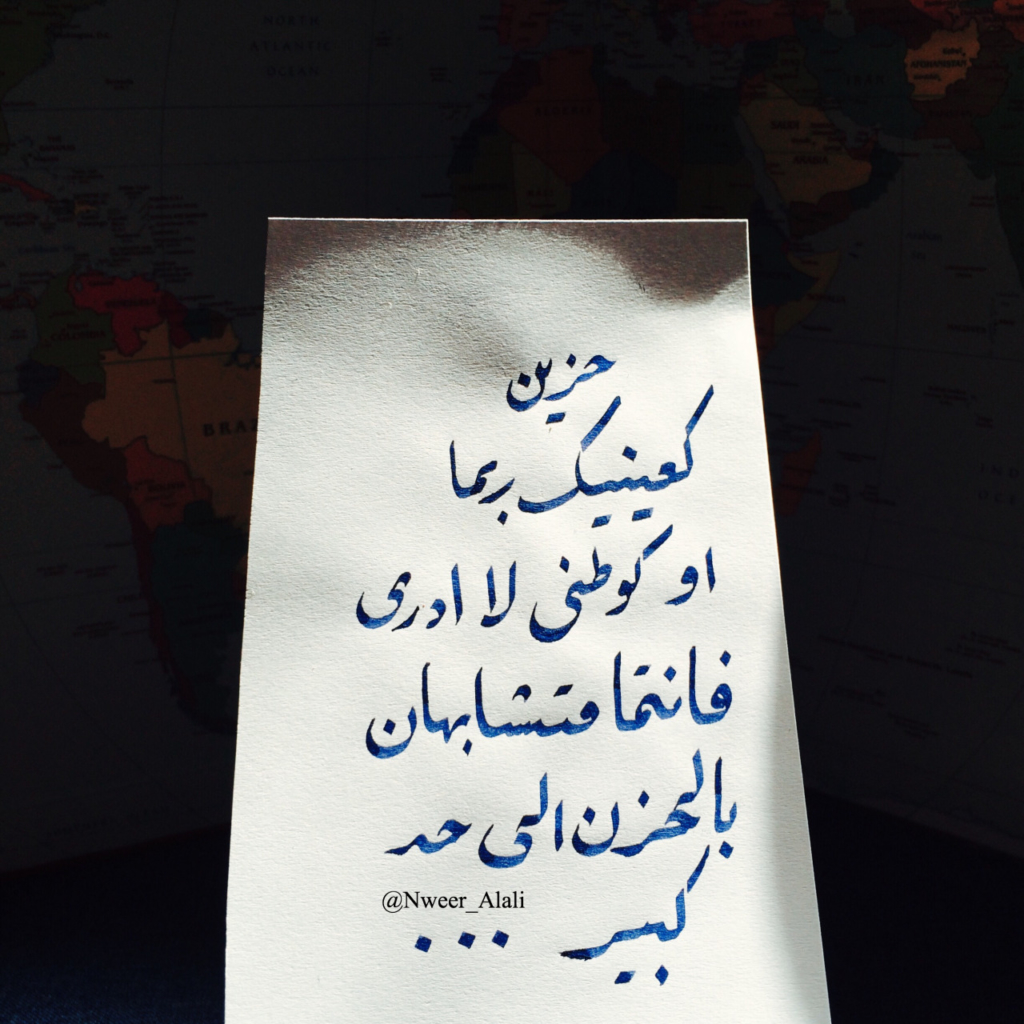 حزين
كعينيك ربما
او كوطني لا ادري
فانتما متشابهان
بالحزن الى حد
كبير
@Nweer_Alali
...
NORTH
ATLANTIC
OCEAN